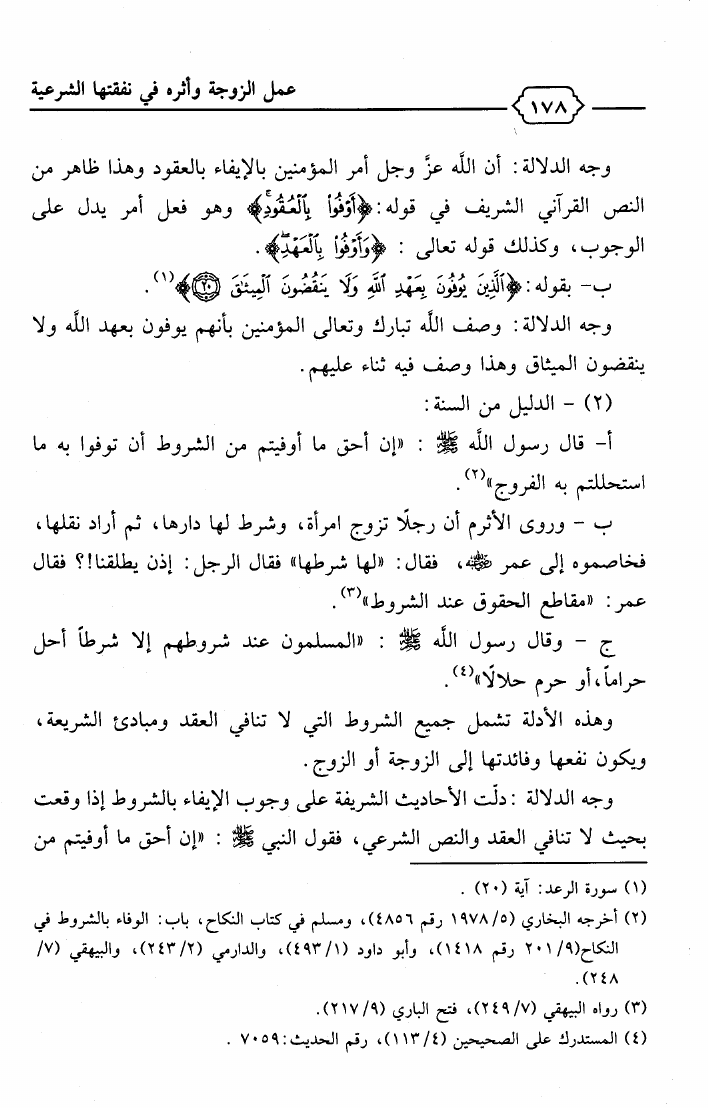 عمل الزوجة وأثره في نفقتها الشرعية
١٧٨
وجه الدلالة: أن اللَّه عزَّ وجل أمر المؤمنين بالإيفاء بالعقود وهذا ظاهر من
النص القرآني الشريف في قوله: ﴿أَوْفُوا۟ بِٱلْعُقُودِۚ﴾ وهو فعل أمر يدل على
الوجوب، وكذلك قوله تعالى : ﴿وَأَوْفُوا۟ بِٱلْعَهْدِۖ﴾.
ب- بقوله: ﴿ٱلَّذِينَ يُوفُونَ بِعَهْدِ ٱللَّهِ وَلَا يَنقُضُونَ ٱلْمِيثَٰقَ ٢٠﴾(١).
وجه الدلالة: وصف اللَّه تبارك وتعالى المؤمنين بأنهم يوفون بعهد اللَّه ولا
ينقضون الميثاق وهذا وصف فيه ثناء عليهم.
(٢) - الدليل من السنة:
أ- قال رسول اللَّه ﷺ : «إن أحق ما أوفيتم من الشروط أن توفوا به ما
استحللتم به الفروج»(٢).
ب - وروى الأثرم أن رجلًا تزوج امرأة، وشرط لها دارها، ثم أراد نقلها،
فخاصموه إلى عمر رضي الله عنه، فقال: «لها شرطها» فقال الرجل: إذن يطلقنا!؟ فقال
عمر: «مقاطع الحقوق عند الشروط»(٣).
ج - وقال رسول اللَّه ﷺ : «المسلمون عند شروطهم إلا شرطاً أحل
حراماً، أو حرم حلالًا»(٤).
وهذه الأدلة تشمل جميع الشروط التي لا تنافي العقد ومبادئ الشريعة،
ويكون نفعها وفائدتها إلى الزوجة أو الزوج.
وجه الدلالة : دلّت الأحاديث الشريفة على وجوب الإيفاء بالشروط إذا وقعت
بحيث لا تنافي العقد والنص الشرعي، فقول النبي ﷺ : «إن أحق ما أوفيتم من
(١) سورة الرعد: آية (٢٠) .
(٢) أخرجه البخاري (٥/ ١٩٧٨ رقم ٤٨٥٦)، ومسلم في كتاب النكاح، باب: الوفاء بالشروط في
النكاح(٩/ ٢٠١ رقم ١٤١٨)، وأبو داود (١/ ٤٩٣)، والدارمي (٢/ ٢٤٣)، والبيهقي (٧/
٢٤٨).
(٣) رواه البيهقي (٧/ ٢٤٩)، فتح الباري (٩/ ٢١٧).
(٤) المستدرك على الصحيحين (٤/ ١١٣)، رقم الحديث: ٧٠٥٩ .